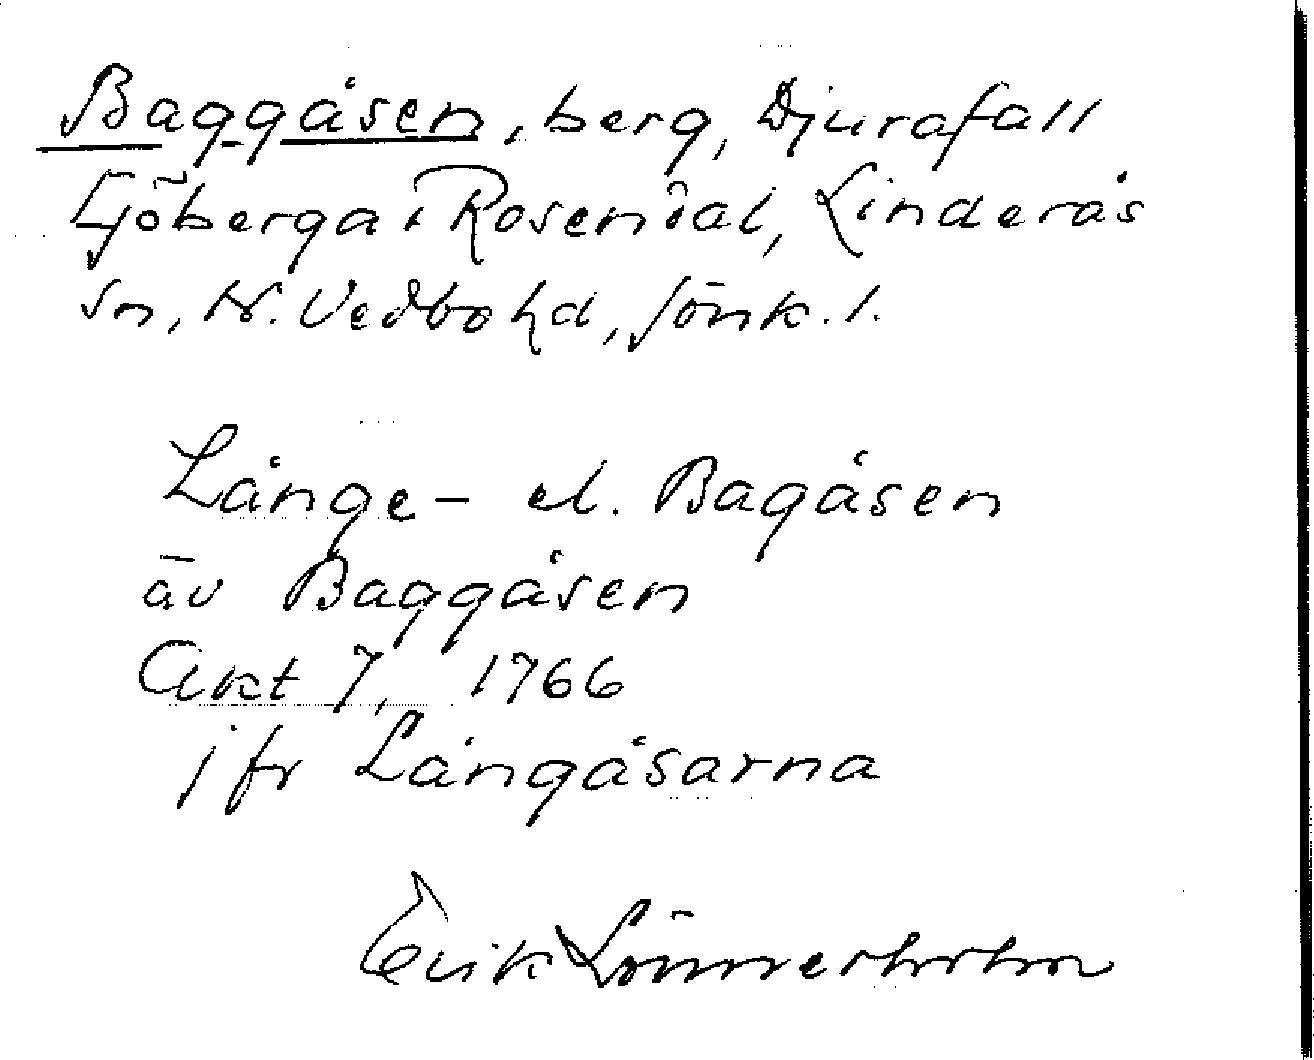 Baggåsen, berg, Djurafall
Ljöberga, Rosendal, Linderås
sn, N. Vedbo hd, Jönk. l.
Långe- el. Bagåsen
äv Baggåsen
Akt 7, 1766
jfr Långåsarna
Erik Lönnerholm